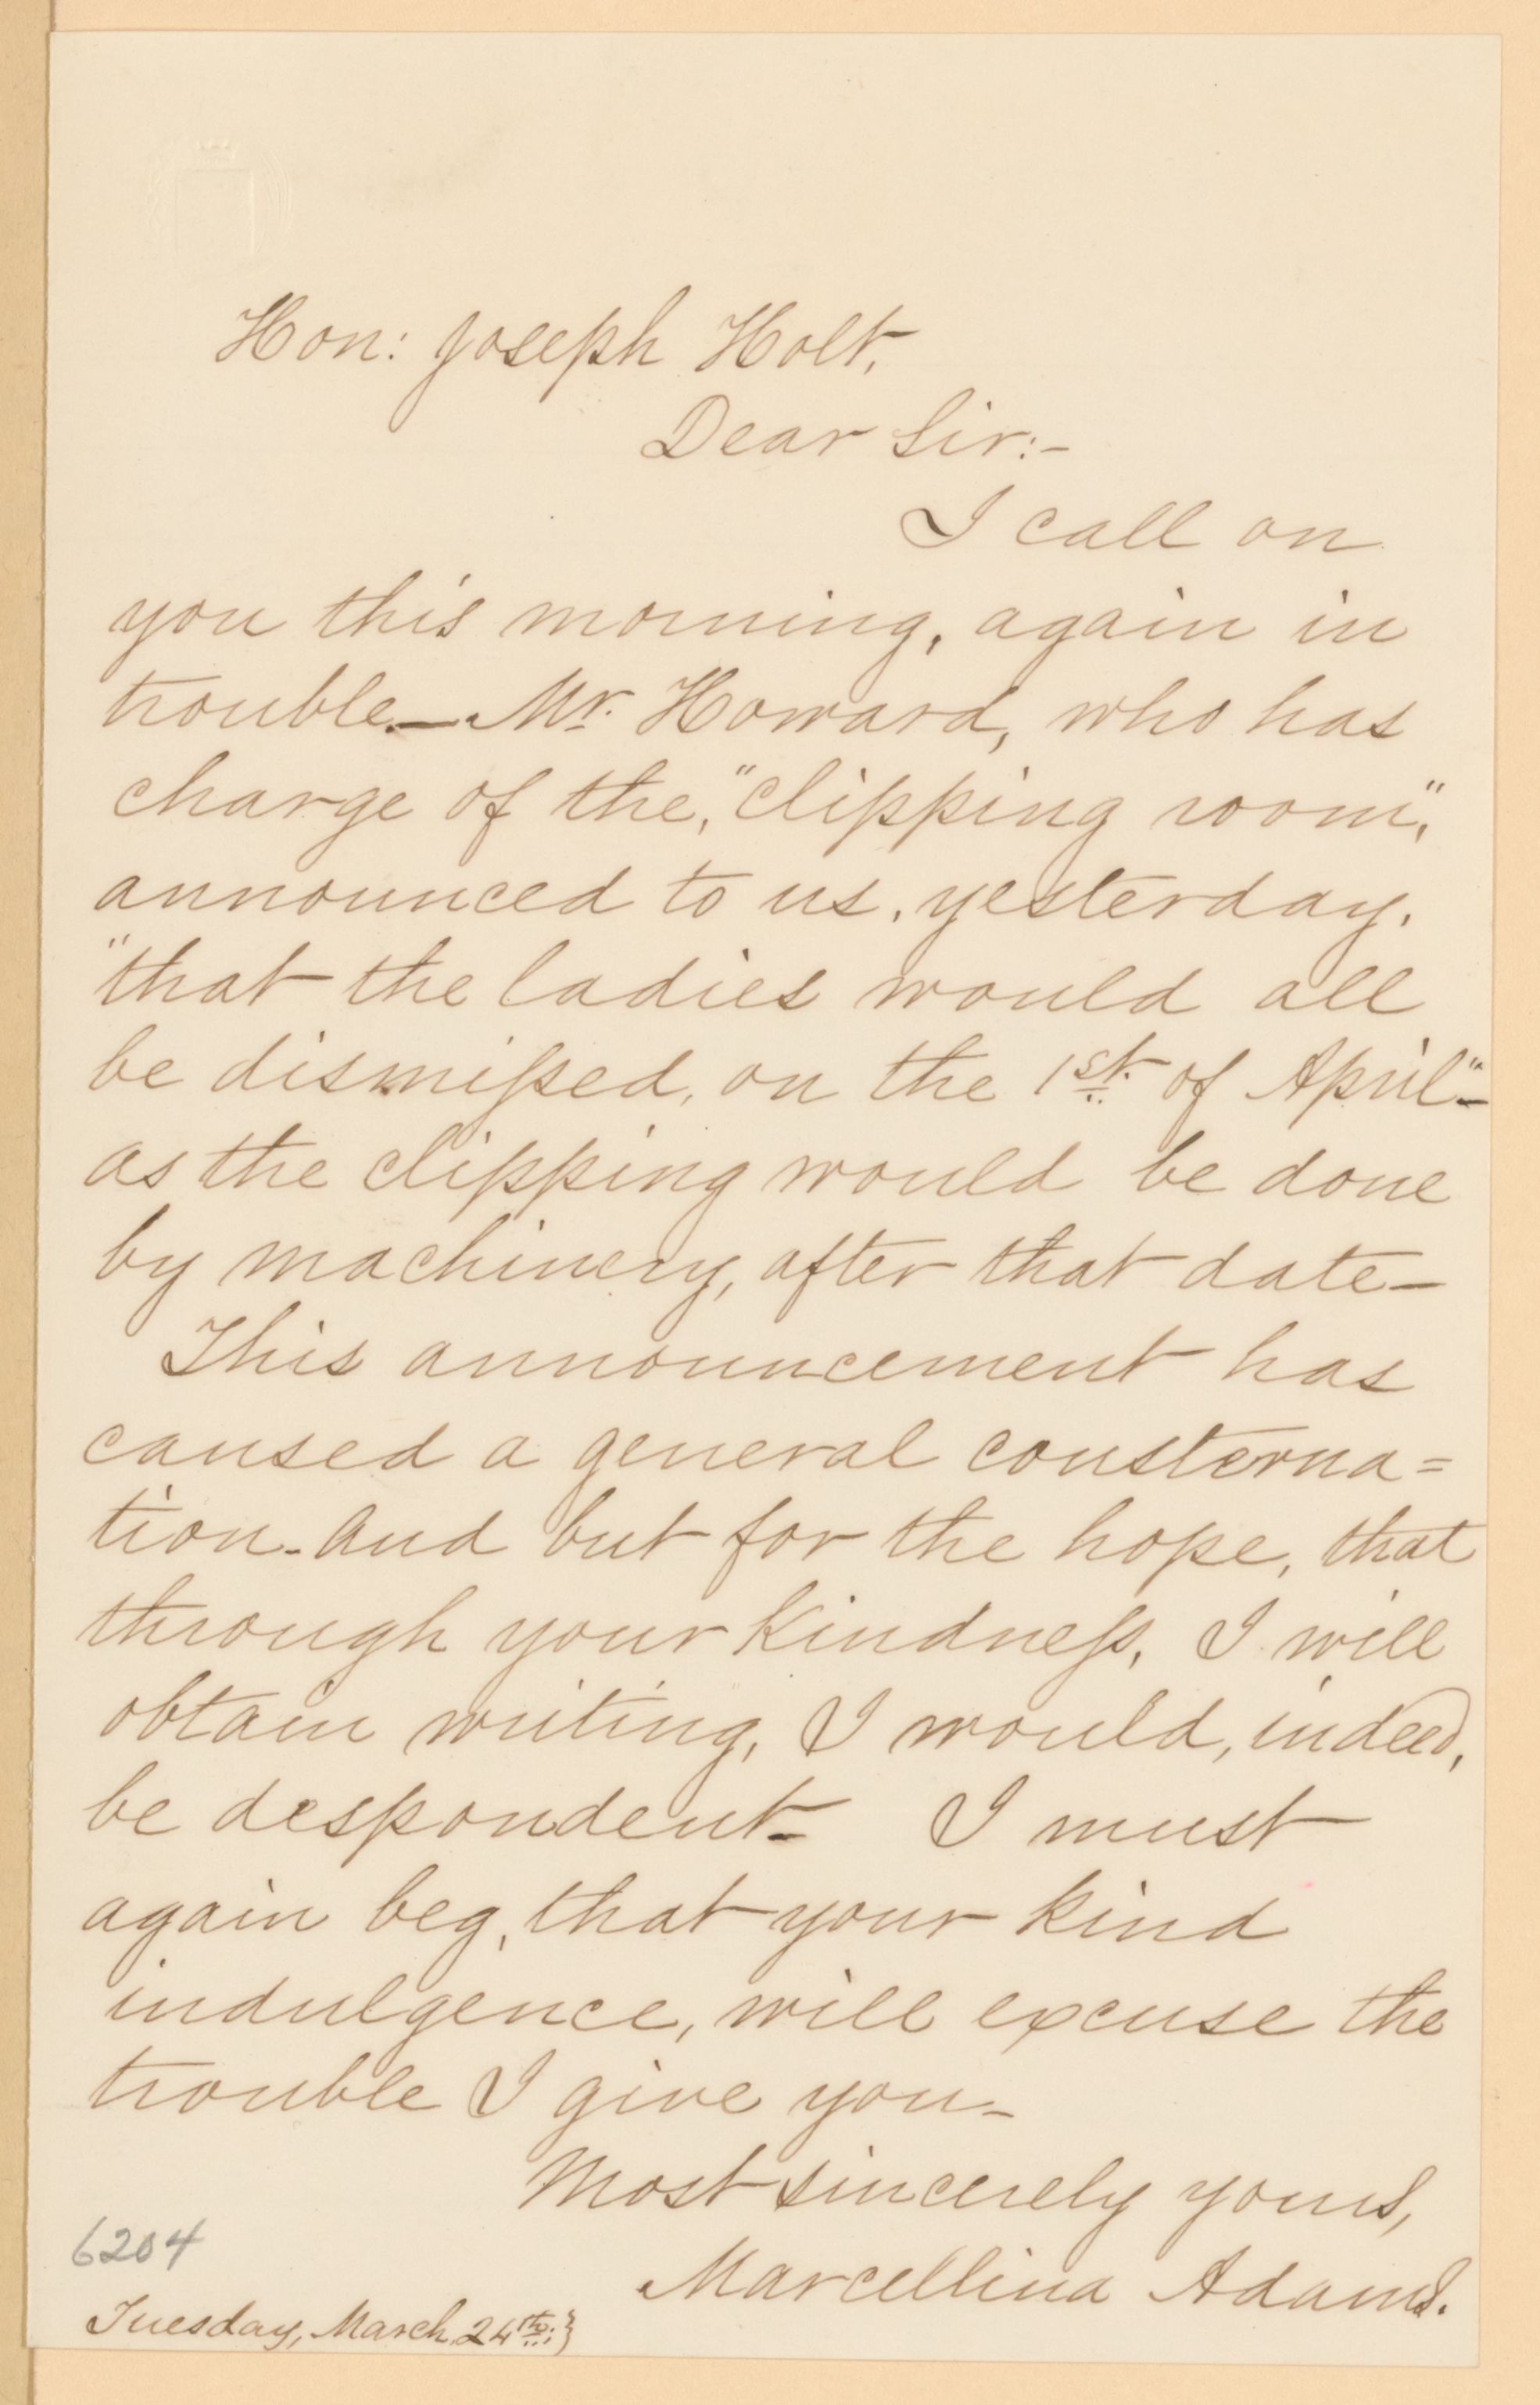 Hon: Joseph Holt,
Dear Sir:-
I call on
you this morning, again in
trouble.— Mr. Howard, who has
charge of the, "clipping room",
announced to us, yesterday,
"that the ladies would all
be dismissed, on the 1st. of April"-
as the clipping would be done
by machinery, after that date—
This announcement has
caused a general consterna=
tion- and but for the hope, that
through your kindness, I will
obtain writing, I would, indeed,
be despondent- I must
again beg, that your kind
indulgence, will excuse the
trouble I give you-
Most sincerely yours,
Marcellina Adams.
6204
Tuesday, March 24th. }